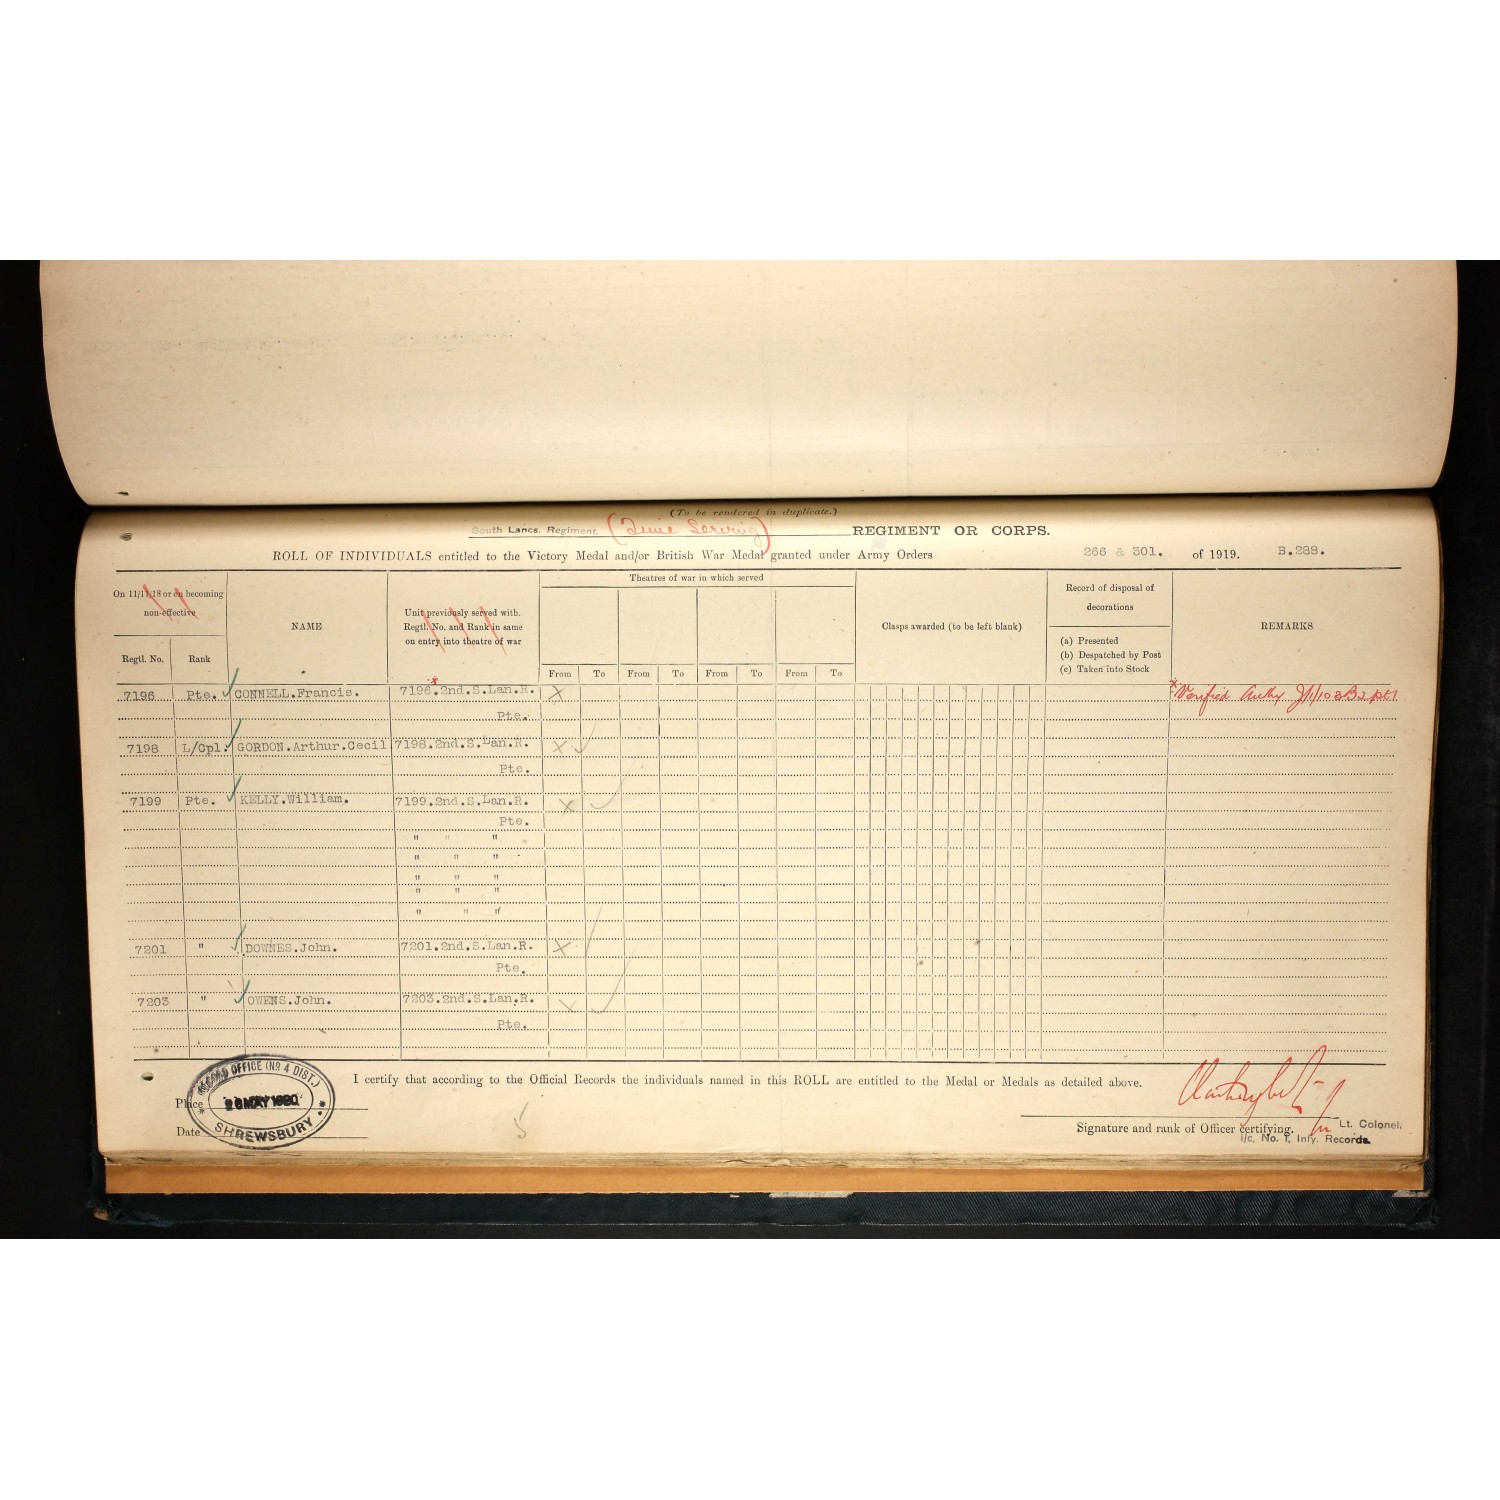 (To be rendered in duplicate.)
South Lancs. Regiment. (Time Serving) REGIMENT OR CORPS.
ROLL OF INDIVIDUALS entitled to the Victory Medal and/or British War Medal granted under Army Orders 266 & 301. of 1919. B.288.
On 11/11/18 or on becoming non-effective
Regtl. No. Rank
NAME
Unit previously served with. Regtl. No. and Rank in same on entry into theatre of war
Theatres of war in which served
From To From To From To From To
Clasps awarded (to be left blank)
Record of disposal of decorations
(a) Presented
(b) Despatched by Post
(c) Taken into Stock
REMARKS
7196 Pte. CONNELL.Francis. 7196.2nd.S.Lan.R. x Verified Authy
Pte.
7198 L/Cpl. GORDON.Arthur.Cecil 7198.2nd.S.Lan.R. x
Pte.
7199 Pte. KELLY.William. 7199.2nd.S.Lan.R. x
Pte.
" " "
" " "
" " "
" " "
" " "
7201 " DOWNES.John. 7201.2nd.S.Lan.R. x
Pte.
7203 " OWENS.John. 7203.2nd.S.Lan.R. x
Pte.
I certify that according to the Official Records the individuals named in this ROLL are entitled to the Medal or Medals as detailed above.
Place
Date
RECORD OFFICE (No 4 DIST.)
26 MAY 1920
SHREWSBURY
Signature and rank of Officer certifying. Lt. Colonel,
i/c. No. 1, Infy. Records.